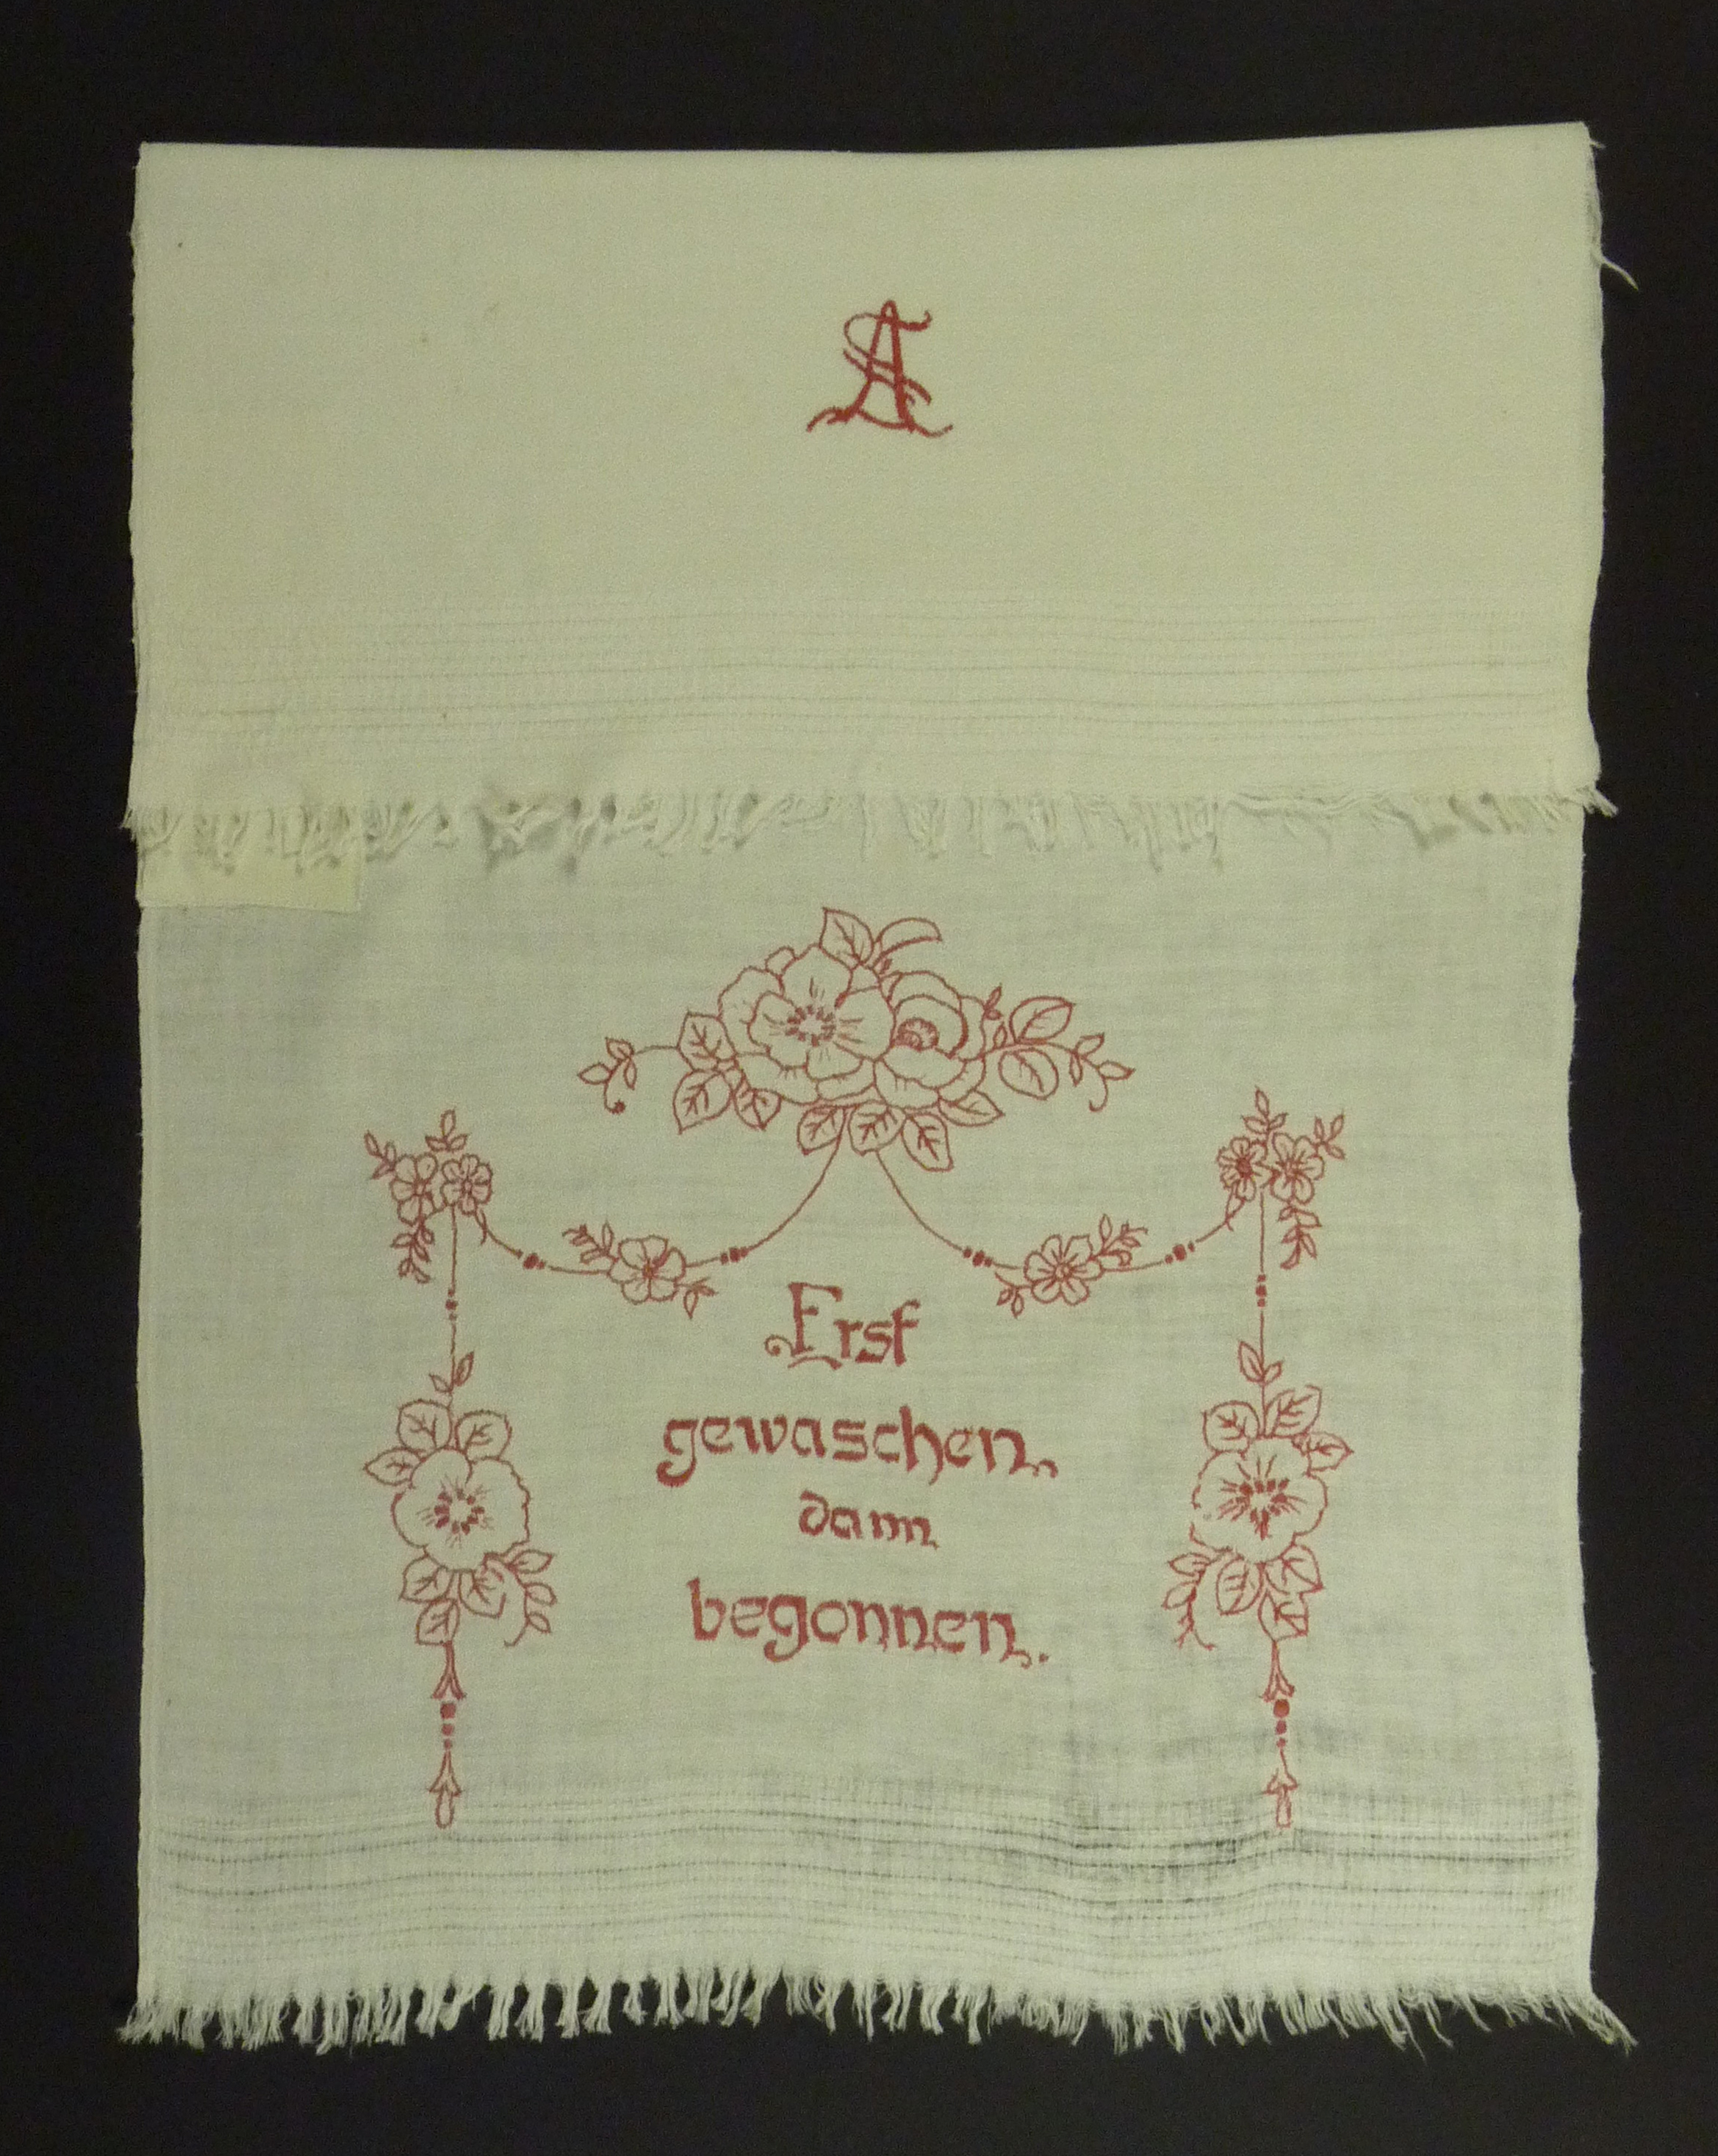 SA
Erst
gewaschen,
dann
begonnen.